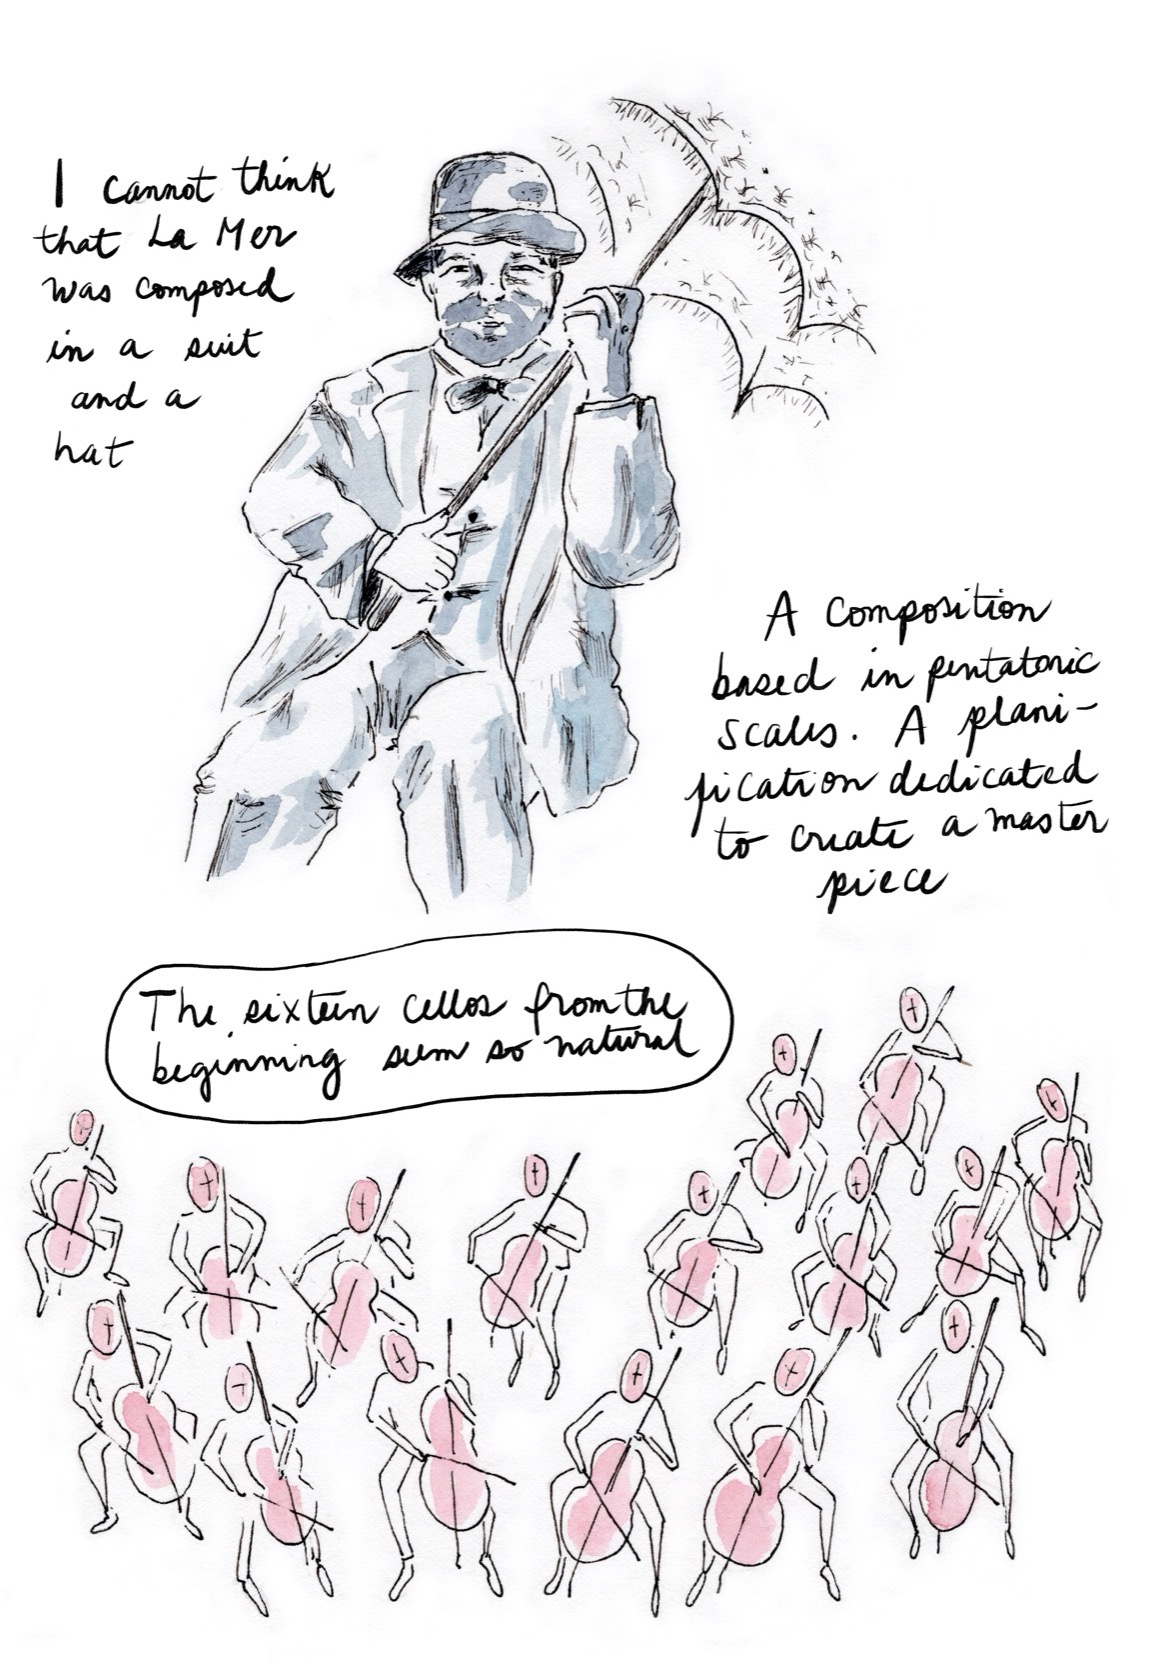 I cannot think
that La Mer
was composed
in a suit
and a
hat
A composition
based in pentatonic
scales. A plani-
fication dedicated
to create a master
piece
The sixteen cellos from the
beginning seem so natural